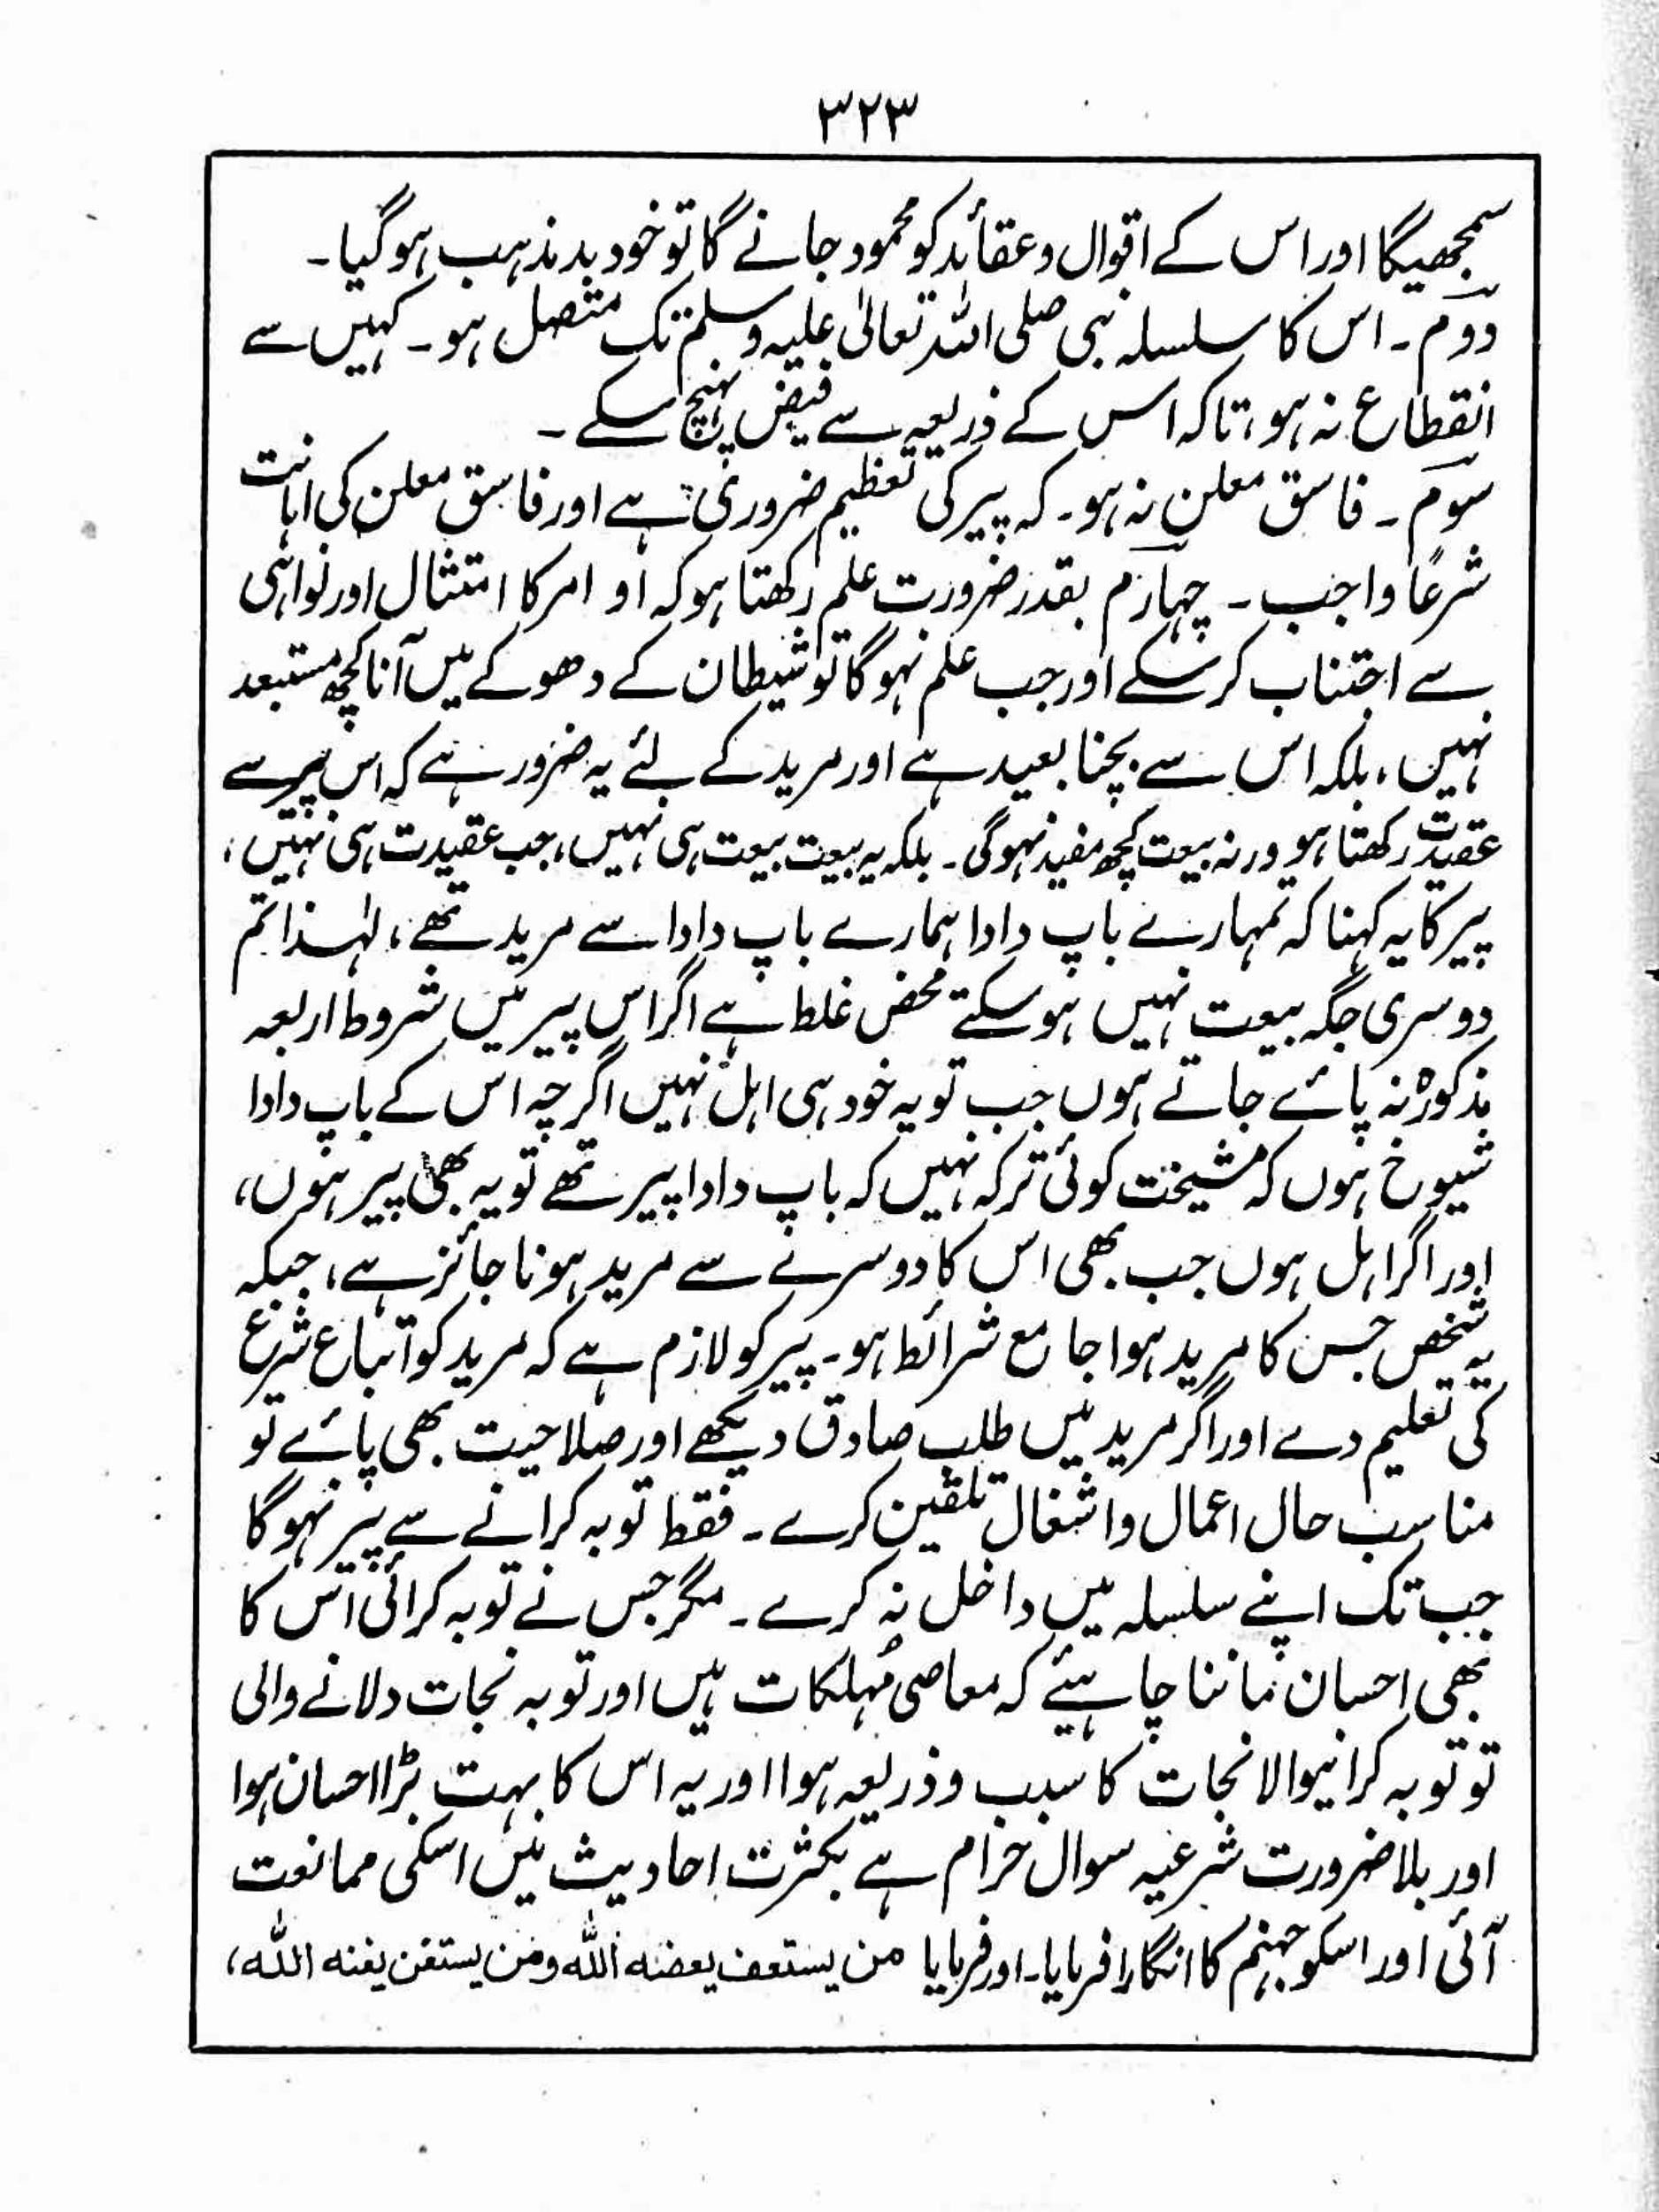 ۳۲۳
سمجھیگا اور اس کے اقوال و عقائد کو محمود جانے گا تو خود بدمذہب ہوگیا۔
دوم۔ اس کا سلسلہ نبی صلی اللہ تعالیٰ علیہ وسلم تک متصل ہو۔ کہیں سے
انقطاع نہ ہو، تاکہ اس کے ذریعہ سے فیض پہنچ سکے۔
سوم۔ فاسق معلن نہ ہو۔ کہ پیر کی تعظیم ضروری ہے اور فاسق معلن کی اہانت
شرعًا واجب۔ چہارم بقدر ضرورت علم رکھتا ہو کہ او امر کا امتثال اور نواہی
سے اجتناب کرسکے اور جب علم نہوگا تو شیطان کے دھوکے میں آنا کچھ مستبعد
نہیں، بلکہ اس سے بچنا بعید ہے اور مرید کے لئے یہ ضرور ہے کہ اس پیر سے
عقیدت رکھتا ہو ورنہ بیعت کچھ مفید نہوگی۔ بلکہ یہ بیعت بیعت ہی نہیں، جب عقیدت ہی نہیں،
پیر کا یہ کہنا کہ تمہارے باپ دادا ہمارے باپ دادا سے مرید تھے، لہٰذا تم
دوسری جگہ بیعت نہیں ہوسکتے محض غلط ہے اگر اس پیر میں شروط اربعہ
مذکورہ نہ پائے جاتے ہوں جب تو یہ خود ہی اہل نہیں اگرچہ اس کے باپ دادا
شیوخ ہوں کہ مشیخت کوئی ترکہ نہیں کہ باپ دادا پیر تھے تو یہ بھی پیر ہوں،
اور اگر اہل ہوں جب بھی اس کا دوسرے سے مرید ہونا جائز ہے، جبکہ
یہ شخص جس کا مرید ہوا جامع شرائط ہو۔ پیر کو لازم ہے کہ مرید کو اتباع شرع
کی تعلیم دے اور اگر مرید میں طلب صادق دیکھے اور صلاحیت بھی پائے تو
مناسب حال اعمال و اشغال تلقین کرے۔ فقط توبہ کرانے سے پیر نہوگا
جب تک اپنے سلسلہ میں داخل نہ کرے۔ مگر جس نے توبہ کرائی اس کا
بھی احسان ماننا چاہیئے کہ معاصی مُہلکات ہیں اور توبہ نجات دلانے والی
تو توبہ کرانیوالا نجات کا سبب و ذریعہ ہوا اور یہ اس کا بہت بڑا احسان ہوا
اور بلا ضرورت شرعیہ سوال حرام ہے بکثرت احادیث میں اسکی ممانعت
آئی اور اسکو جہنم کا انگارا فرمایا۔ اور فرمایا من یستعف یعفہ اللہ ومن یستغن یغنہ اللہ،